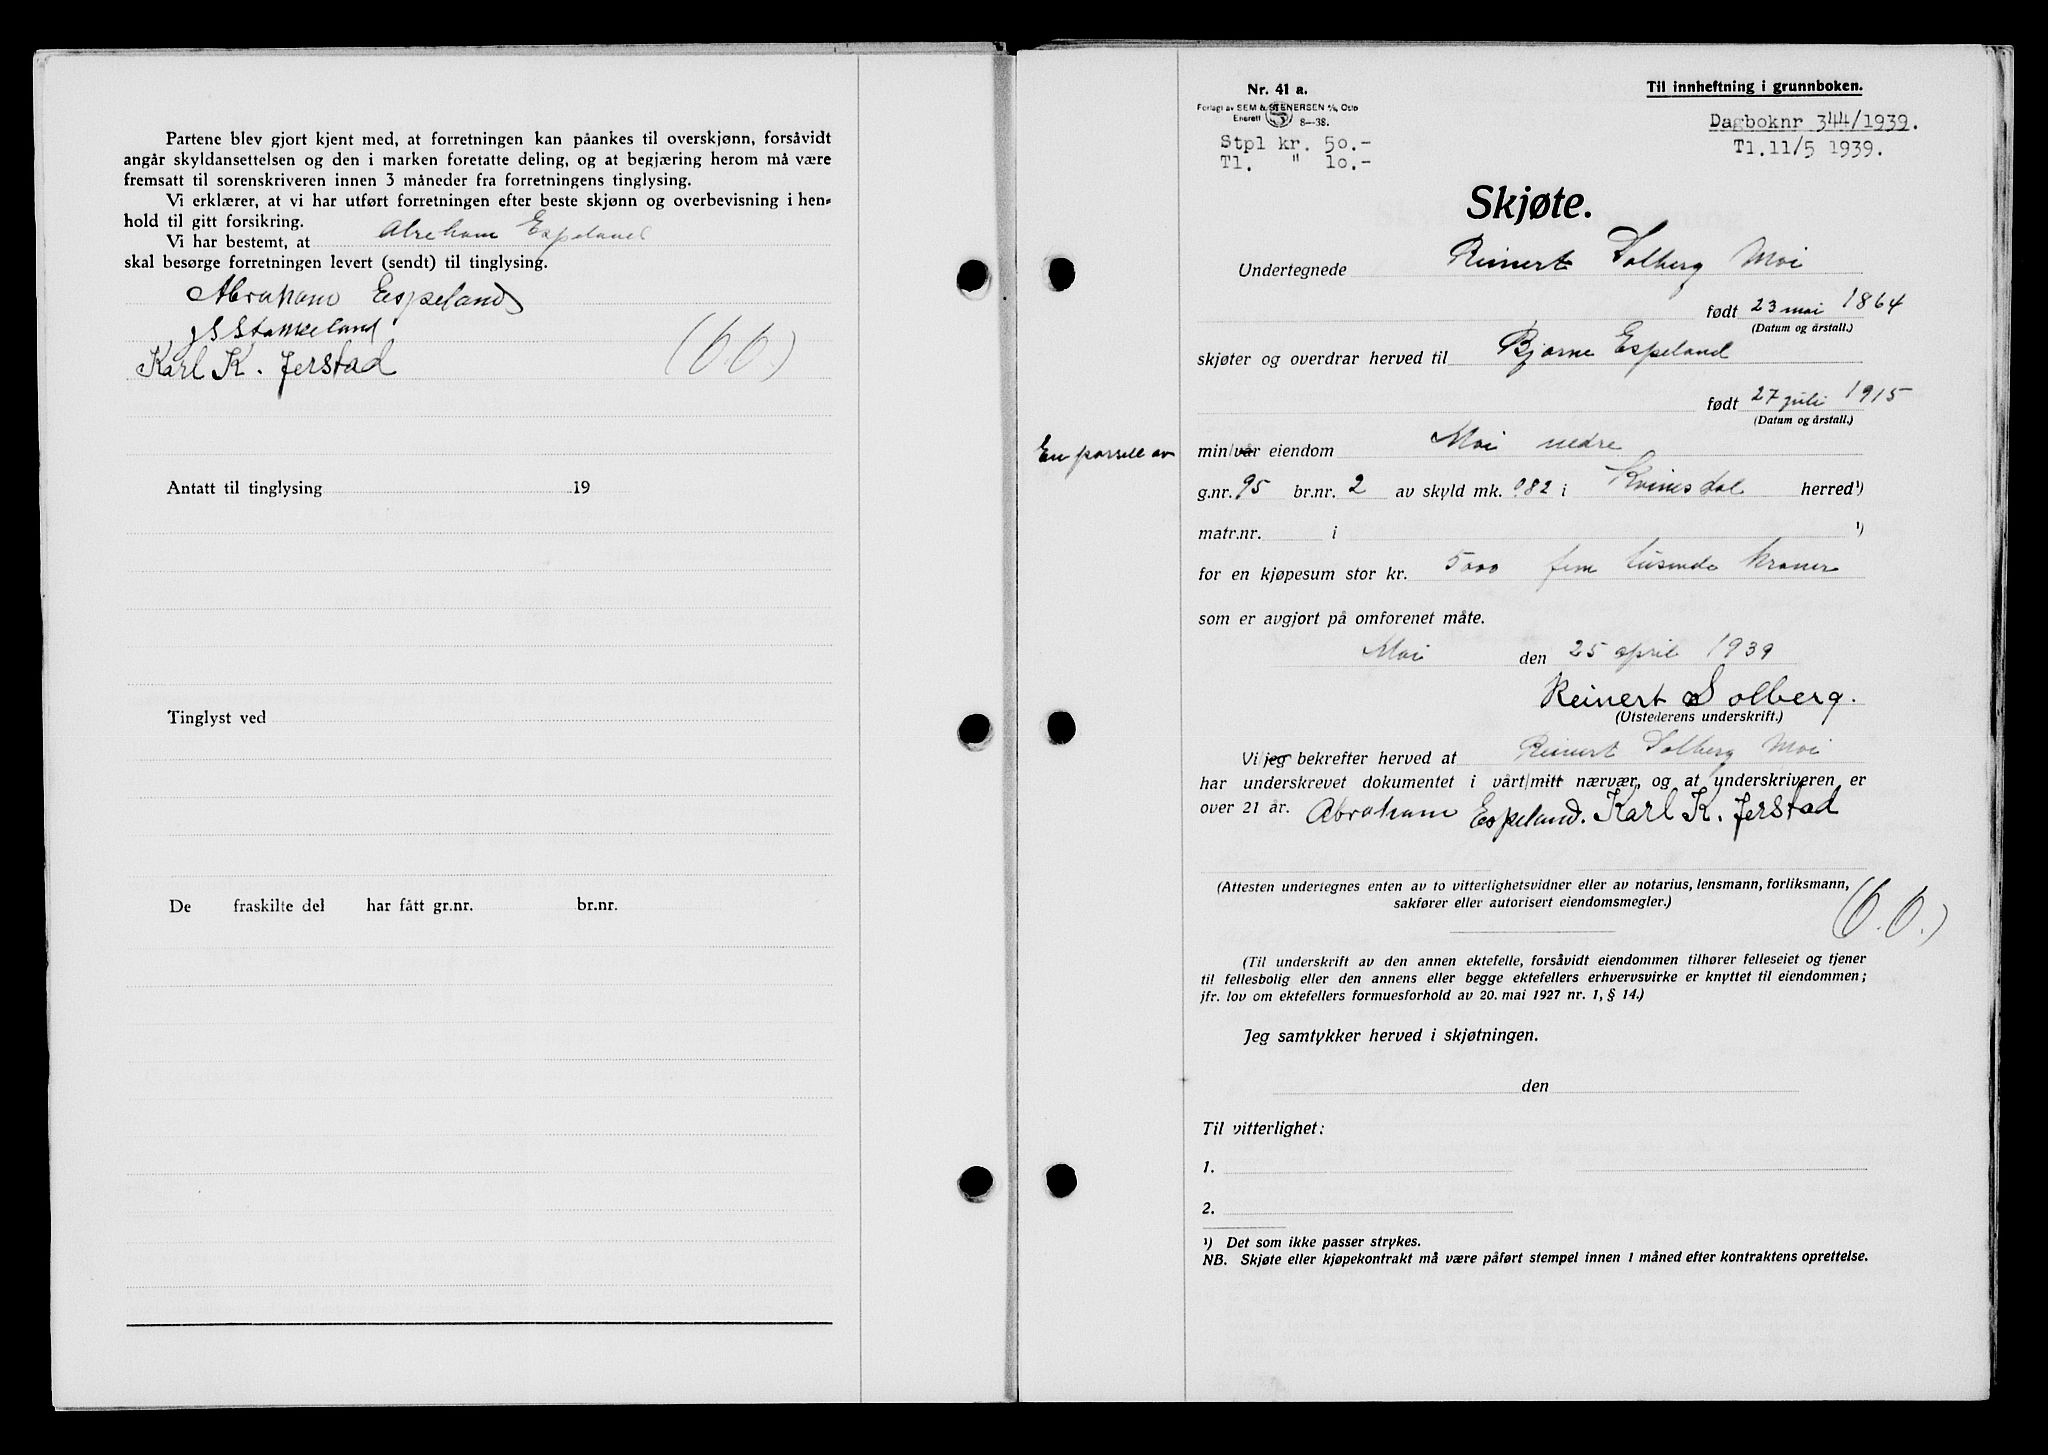 Partene blev gjort kjent med, at forretningen kan påankes til overskjønn, forsåvidt
angår skyldansettelsen og den i marken foretatte deling, og at begjæring herom må være
fremsatt til sorenskriveren innen 3 måneder fra forretningens tinglysing.
Vi erklærer, at vi har utført forretningen efter beste skjønn og overbevisning i hen-
hold til gitt forsikring.
Vi har bestemt, at Abraham Espeland
skal besørge forretningen levert (sendt) til tinglysing.
Abraham Espeland
Karl K. Jerstad
Antatt til tinglysing 19
Tinglyst ved
De fraskilte del har fått gr.nr. br.nr.
Nr. 41 a.
Forlagt av SEM & STENERSEN A/S, Oslo
Enerett 8—38.
Stpl kr. 50.-
Tl. " 10.-
Til innheftning i grunnboken.
Dagboknr 344/1939.
Tl. 11/5 1939.
Skjøte.
Undertegnede Reinert Solberg Moi
født 23 mai 1864
(Datum og årstall.)
skjøter og overdrar herved til Bjarne Espeland
født 27 juli 1915
(Datum og årstall.)
En parsell av min/vår eiendom Moi nedre
g.nr. 95 br.nr. 2 av skyld mk. 0.82 i Kvinesdal herred¹)
matr.nr. i ¹)
for en kjøpesum stor kr. 5000 fem tusinde kroner
som er avgjort på omforenet måte.
Moi den 25 april 1939
Reinert Solberg.
(Utstederens underskrift.)
Vi/jeg bekrefter herved at Reinert Solberg Moi
har underskrevet dokumentet i vårt/mitt nærvær, og at underskriveren er
over 21 år. Abraham Espeland. Karl K. Jerstad
(Attesten undertegnes enten av to vitterlighetsvidner eller av notarius, lensmann, forliksmann,
sakfører eller autorisert eiendomsmegler.)
(Til underskrift av den annen ektefelle, forsåvidt eiendommen tilhører felleseiet og tjener
til fellesbolig eller den annens eller begge ektefellers erhvervsvirke er knyttet til eiendommen;
jfr. lov om ektefellers formuesforhold av 20. mai 1927 nr. 1, § 14.)
Jeg samtykker herved i skjøtningen.
den
Til vitterlighet:
1.
2.
¹) Det som ikke passer strykes.
NB. Skjøte eller kjøpekontrakt må være påført stempel innen 1 måned efter kontraktens oprettelse.